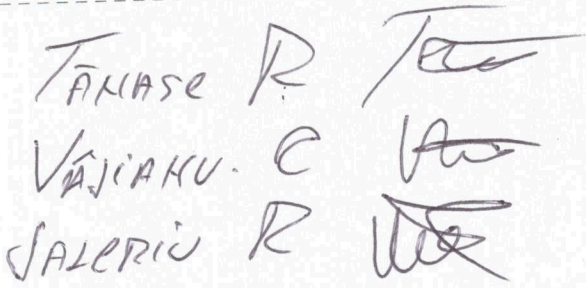 TĂNASE R.
VÂJIANU. C
VALERIU R